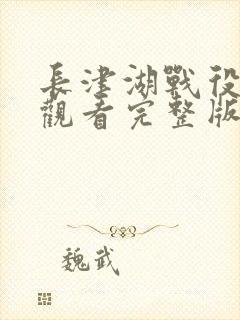 長津湖戰役
觀看完整版
魏武